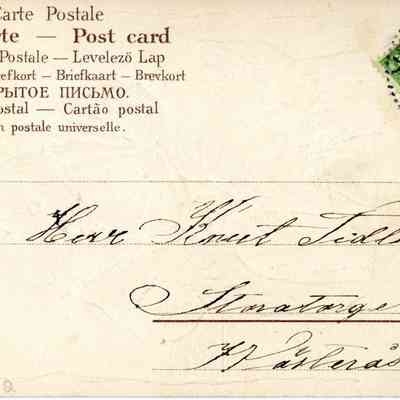 Carte Postale
te — Post card
Postale — Levelező Lap
efkort — Briefkaart — Brevkort
РЫТОЕ ПИСЬМО.
ostal — Cartão postal
n postale universelle.
Herr Knut Tidl
Stoatorge
Västerås